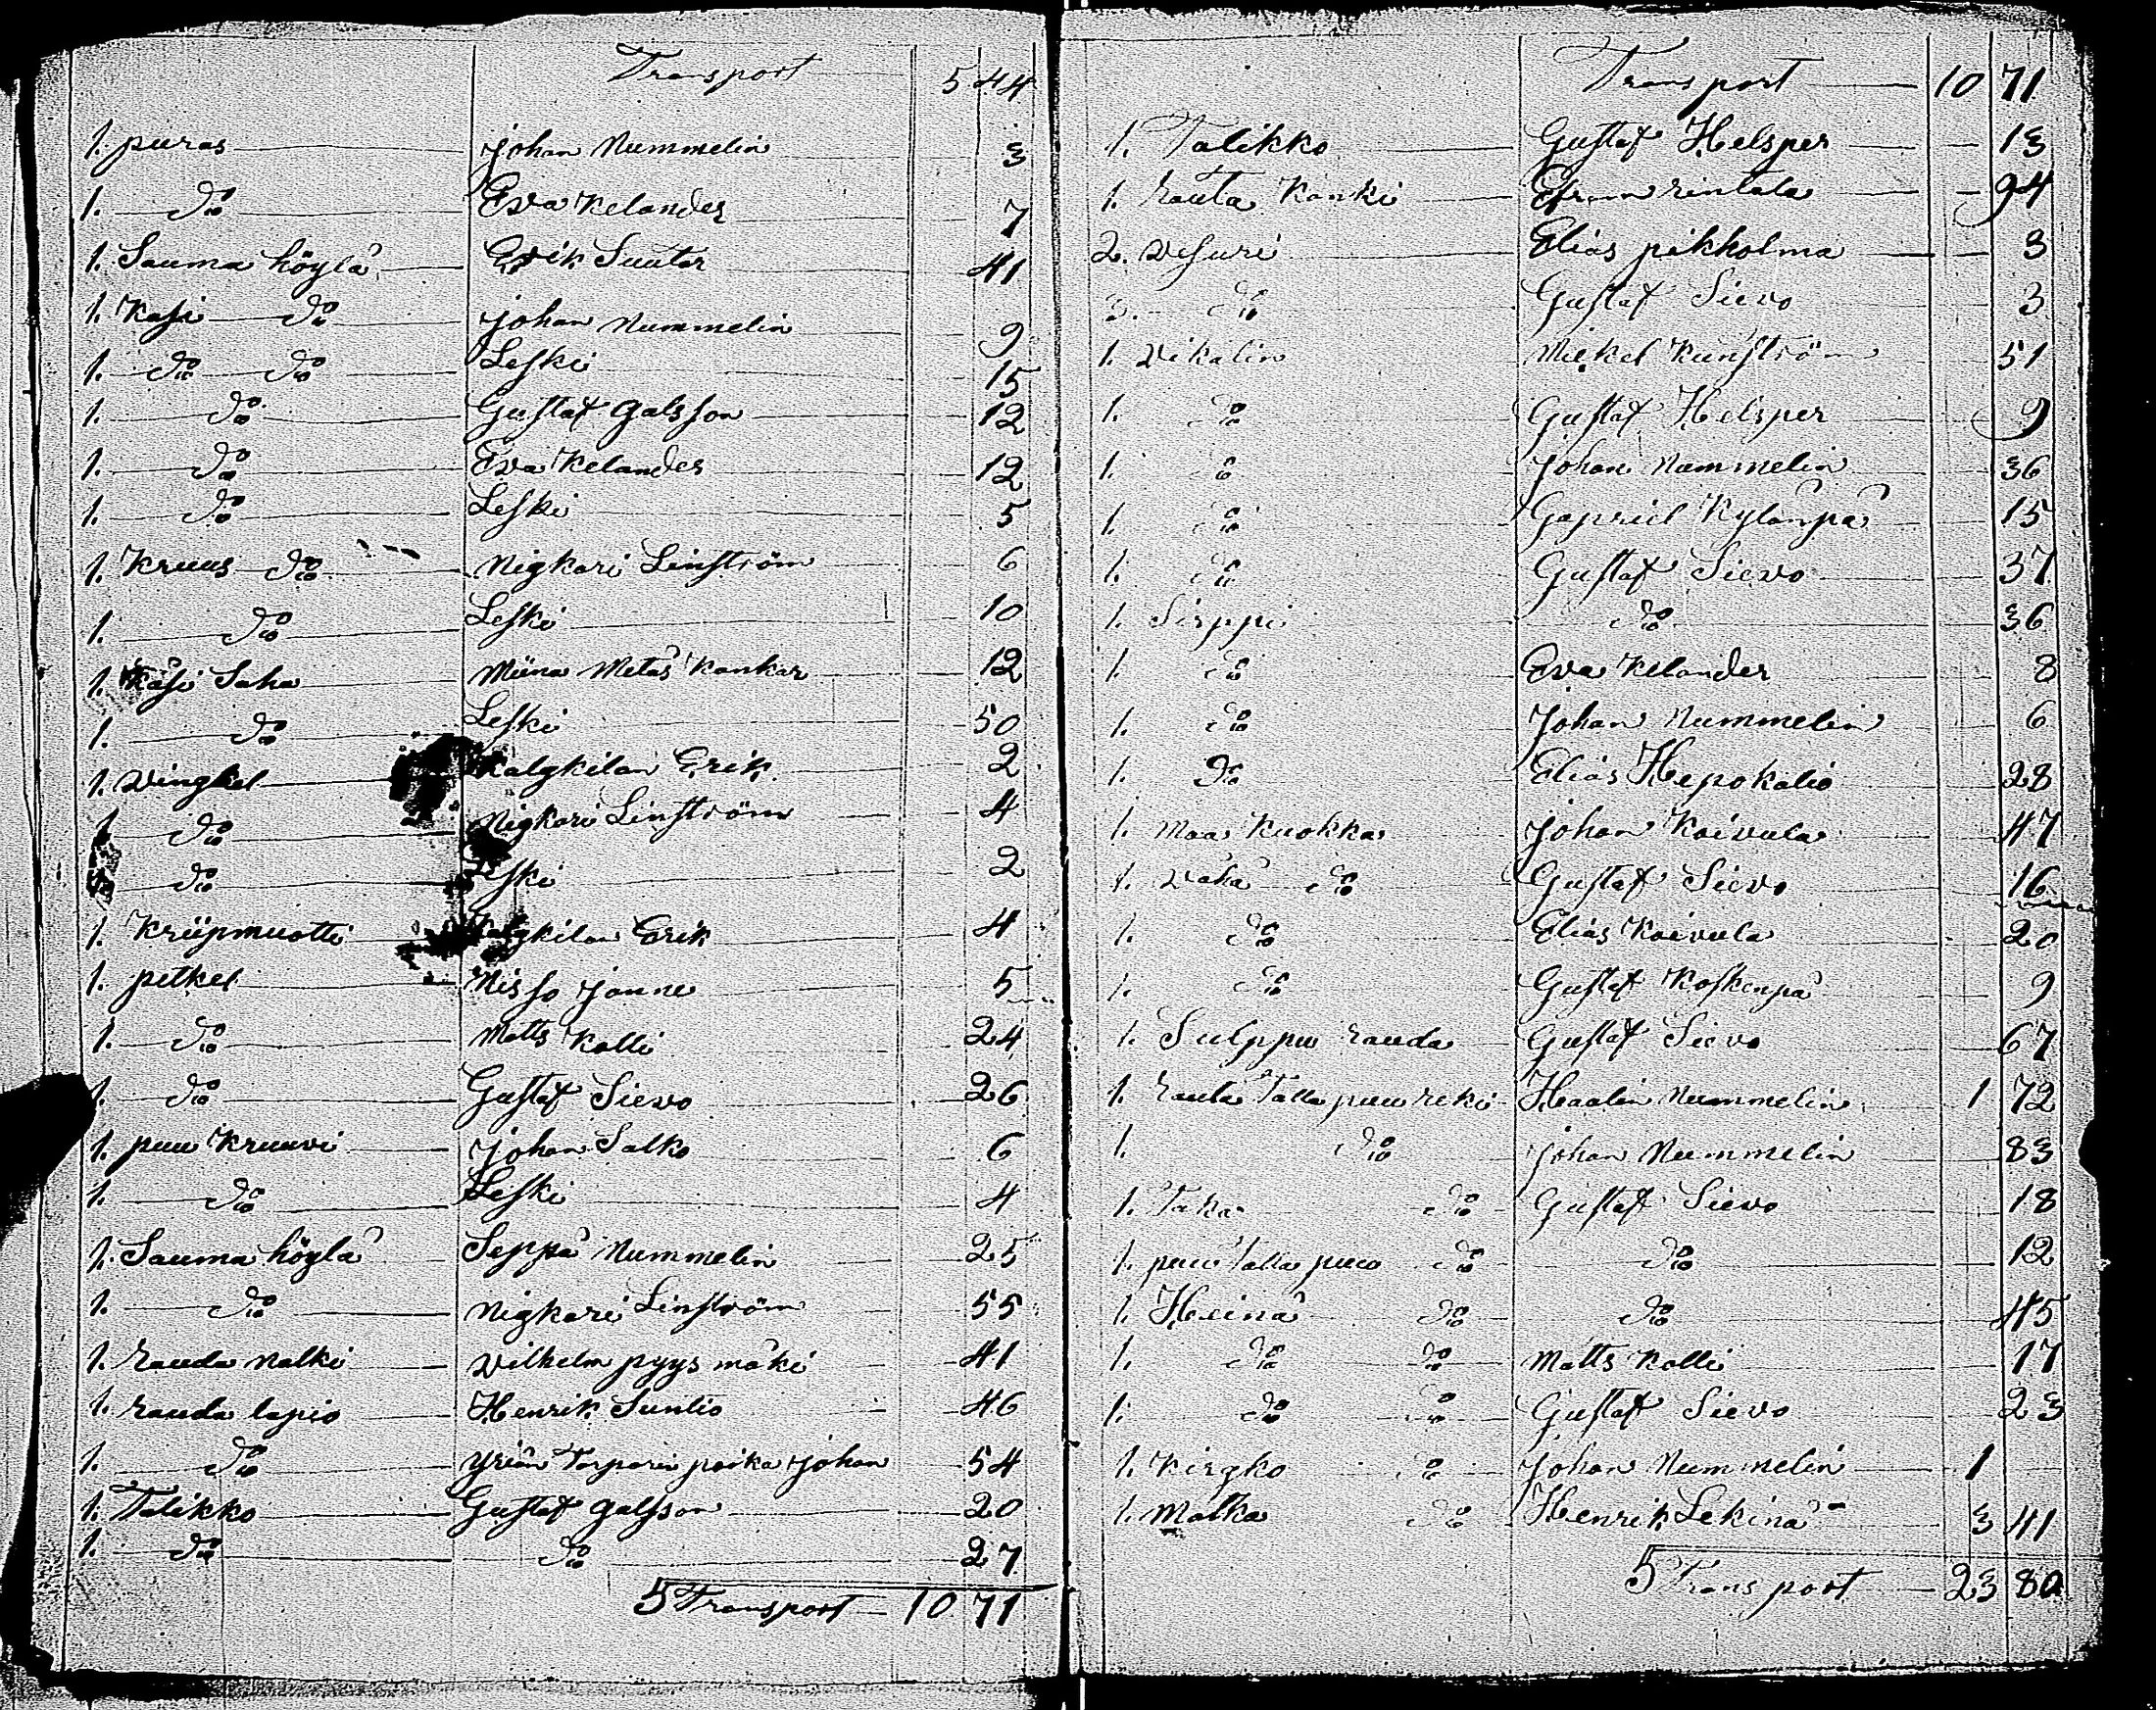 Transport 5 44
1. puras Johan Nummelin 3
1. Do Eva Kelander 7
1. Sauma höylä Erik Suutar 41
1. Käsi Do Johan Nummelin 9
1. Do Do Leski 15
1. Do Gustaf galsson 12
1. Do Eva Kelander 12
1. Do Leski 5
1. Kruus Do Nigkari Linström 6
1. Do Leski 10
1. Käsi Saha Miina Metäs Kankar 12
1. Do Leski 50
1. Vingkel Kalgkilan Erik 2
1. Do Nigkari Linström 4
Do Leski 2
1. Kriipmuotti Kalgkilan Erik 4
1. petkel Nisso Janne 5
1. Do Matts Kolli 24
1. Do Gustaf Sievo 26
1. puu Kruuvi Johan Salko 6
1. Do Leski 4
1. Sauma höylä Seppä Nummelin 25
1. Do Nigkari Linström 55
1. rauda Nalki Vilhelm pyys mäki 41
1. rauda lapio Henrik Suntio 46
1. Do yriön Torparin poika Johan 54
1. Talikko Gustaf galsson 20
1. Do Do 27
5 Transport 10 71
Transport 10 71
1. Talikko Gustaf Helsper 13
1. rauta Kanki Efram rintala 94
2. Vesuri Elias pikkolma 3
3. Do Gustaf Sievo 3
1. Vikatin Mickel Kunström 51
1. Do Gustaf Helsper 9
1. Do Johan Nummelin 36
1. Do Gapriel Kylänpä 15
1. Do Gustaf Sievo 37
1. Sirppi Do 36
1. Do Eva Kelander 8
1. Do Johan Nummelin 6
1. Do Elias Hepokalio 28
1. Maa Kuokka Johan Koivula 47
1. Vähä Do Gustaf Sievo 16
1. Do Elias Koivula 20
1. Do Gustaf Koskenpä 9
1. Sulppu rauda Gustaf Sievo 67
1. rauta Talla puu reki Haalin Nummelin 1 72
1. Do Johan Nummelin 83
1. Taka Do Gustaf Sievo 18
1. puu Talla puu Do Do 12
1. Heinä Do Do 45
1. Do Do Matts Kolli 17
1. Do Do Gustaf Sievo 23
1. Kirgko Do Johan Nummelin 1
1. Matka Do Henrik Lekinä 3 41
5 Transport 23 80